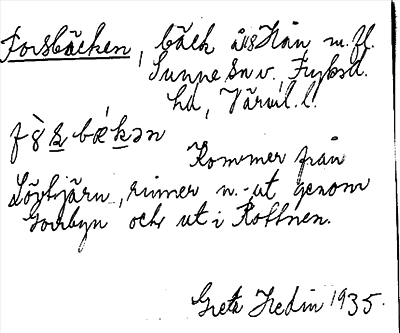 Forsbäcken, bäck m. fl.
Sunne sn v., Fryksd.
hd, Värml. l.
Kommer från
Lövtjärn, rinner n.-ut genom
Torrbyn och ut i Rottnen.
Greta Hedin 1935.